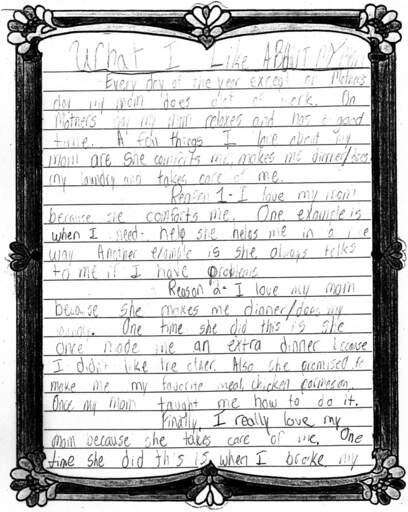 What I Like About My Mom
Every day of the year except on Mothers
day my mom does alot of work. On
Mothers day my mom relaxes and has a good
time. A few things I love about my
mom are she comforts me, makes me dinner/does
my laundry and takes care of me.
Reason 1- I love my mom
because she comforts me. One example is
when I need help she helps me in a nice
way Another example is she always talks
to me if I have problems
Reason 2- I love my mom
because she makes me dinner/does my
laundry. One time she did this is she
once made me an extra dinner because
I didn't like the other. Also she promised to
make me my favorite meal, chicken parmesan.
Once my mom taught me how to do it.
Finally, I really love my
mom because she takes care of me, One
time she did this is when I broke my